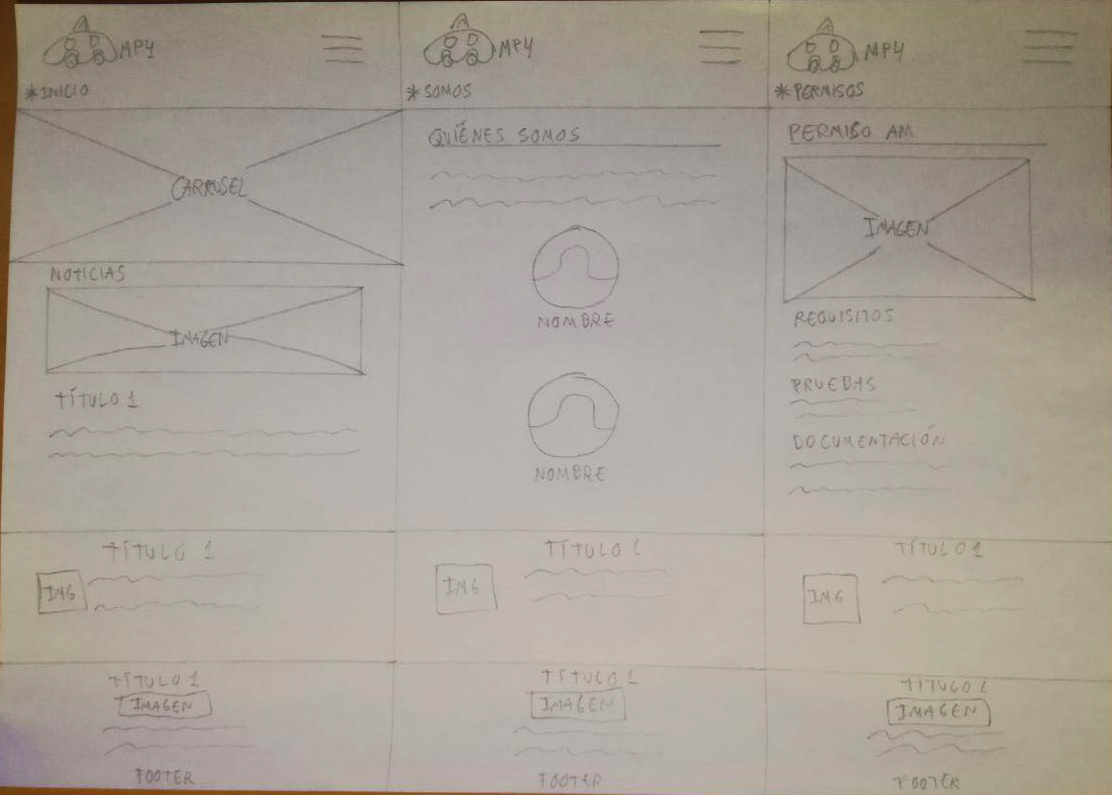 MP4
*INICIO
CARRUSEL
NOTICIAS
IMAGEN
TÍTULO 1
TÍTULO 1
IMG
TÍTULO 1
IMAGEN
FOOTER
MP4
*SOMOS
QUIÉNES SOMOS
NOMBRE
NOMBRE
TÍTULO 1
IMG
TÍTULO 1
IMAGEN
FOOTER
MP4
*PERMISOS
PERMISO AM
IMAGEN
REQUISITOS
PRUEBAS
DOCUMENTACIÓN
TÍTULO 1
IMG
TÍTULO 1
IMAGEN
FOOTER